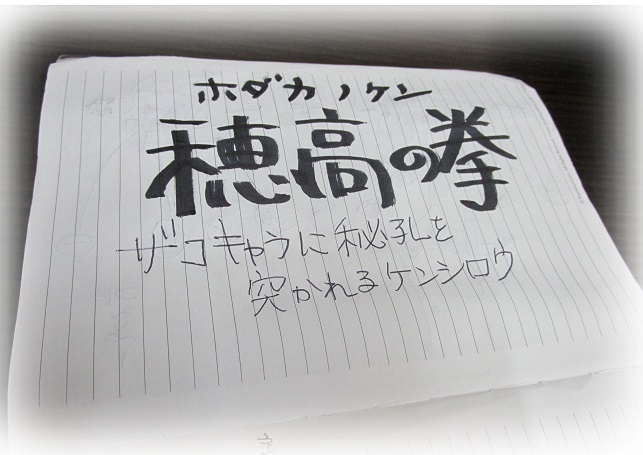 ホダカノケン
穂高の拳
ザコキャラに秘孔を
突かれるケンシロウ